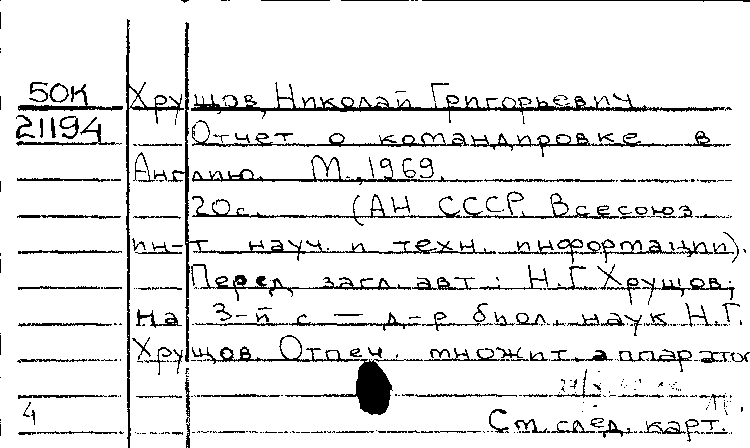 50К Хрущов, Николай Григорьевич
21194 Отчет о командировке в
Англию. М., 1969.
20с. (АН СССР. Всесоюз.
ин-т науч. и техн. информации).
Перед загл. авт.: Н.Г. Хрущов;
на 3-й с — д-р биол. наук Н.Г.
Хрущов. Отпеч. множит. аппаратом
4 См. след. карт.